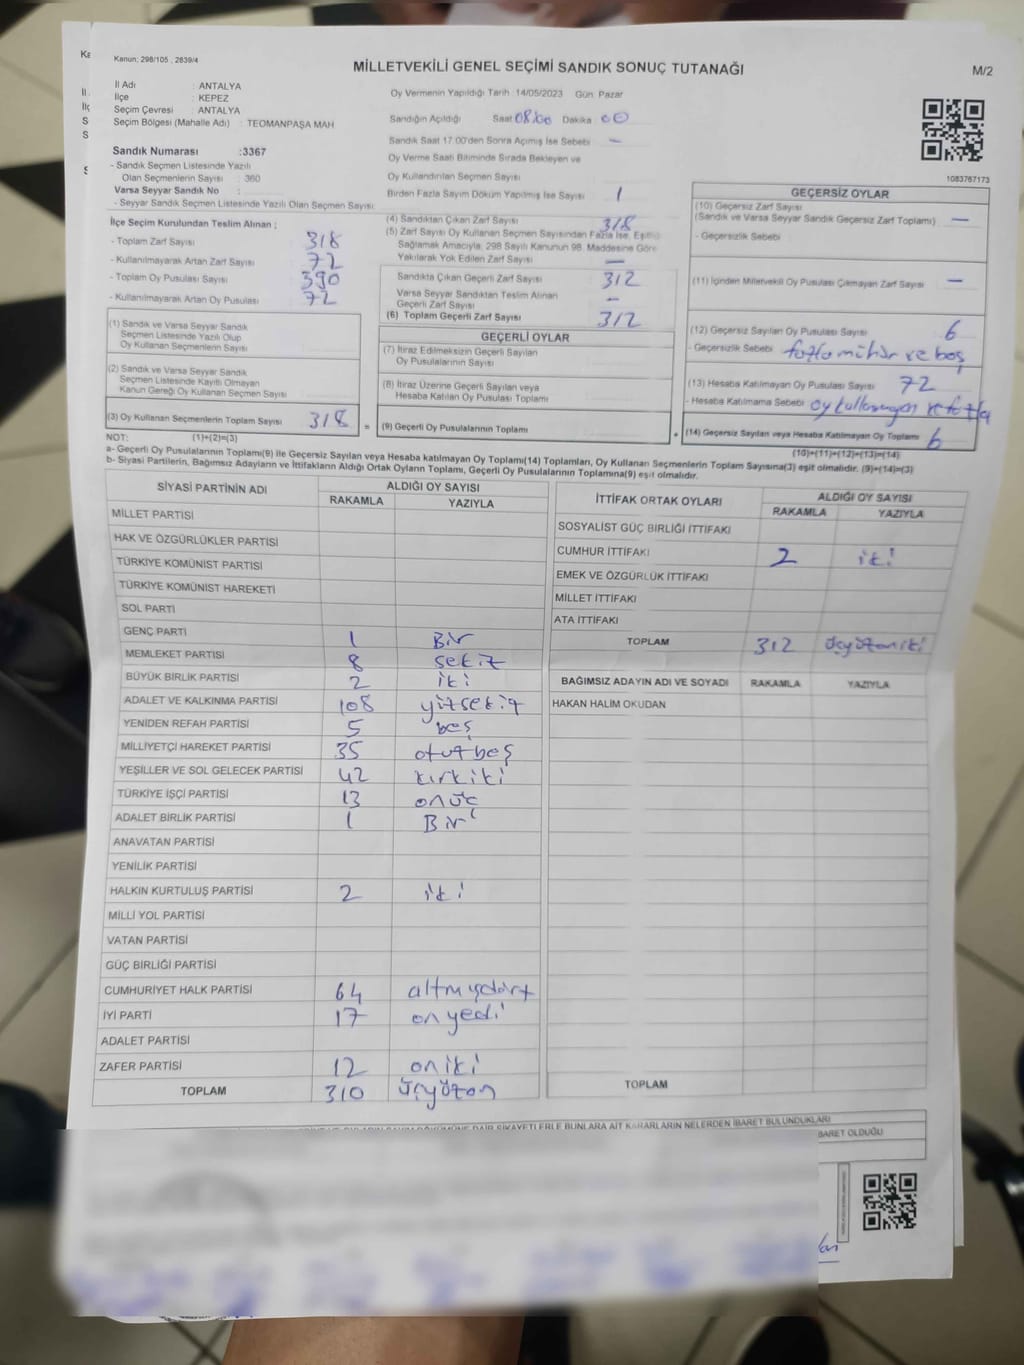 Kanun: 298/105 , 2839/4
MİLLETVEKİLİ GENEL SEÇİMİ SANDIK SONUÇ TUTANAĞI
M/2
İl Adı : ANTALYA
İlçe : KEPEZ
Seçim Çevresi : ANTALYA
Seçim Bölgesi (Mahalle Adı) : TEOMANPAŞA MAH
Sandık Numarası :3367
- Sandık Seçmen Listesinde Yazılı
Olan Seçmenlerin Sayısı : 360
Varsa Seyyar Sandık No :
- Seyyar Sandık Seçmen Listesinde Yazılı Olan Seçmen Sayısı:
İlçe Seçim Kurulundan Teslim Alınan ;
- Toplam Zarf Sayısı 318
- Kullanılmayarak Artan Zarf Sayısı 72
- Toplam Oy Pusulası Sayısı 390
- Kullanılmayarak Artan Oy Pusulası 72
(1) Sandık ve Varsa Seyyar Sandık
Seçmen Listesinde Yazılı Olup
Oy Kullanan Seçmenlerin Sayısı
(2) Sandık ve Varsa Seyyar Sandık
Seçmen Listesinde Kayıtlı Olmayan
Kanun Gereği Oy Kullanan Seçmen Sayısı
(3) Oy Kullanan Seçmenlerin Toplam Sayısı 318 =
Oy Vermenin Yapıldığı Tarih :14/05/2023 Gün: Pazar
Sandığın Açıldığı Saat 08:00 Dakika 00
Sandık Saat 17.00'den Sonra Açımış İse Sebebi —
Oy Verme Saati Bitiminde Sırada Bekleyen ve
Oy Kullandırılan Seçmen Sayısı
Birden Fazla Sayım Döküm Yapılmış İse Sayısı 1
(4) Sandıktan Çıkan Zarf Sayısı 318
(5) Zarf Sayısı Oy Kullanan Seçmen Sayısından Fazla İse, Eşitliği
Sağlamak Amacıyla, 298 Sayılı Kanunun 98. Maddesine Göre
Yakılarak Yok Edilen Zarf Sayısı —
Sandıkta Çıkan Geçerli Zarf Sayısı 312
Varsa Seyyar Sandıktan Teslim Alınan
Geçerli Zarf Sayısı —
(6) Toplam Geçerli Zarf Sayısı 312
GEÇERLİ OYLAR
(7) İtiraz Edilmeksizin Geçerli Sayılan
Oy Pusulalarının Sayısı
(8) İtiraz Üzerine Geçerli Sayılan veya
Hesaba Katılan Oy Pusulası Toplamı
(9) Geçerli Oy Pusulalarının Toplamı +
1083767173
GEÇERSİZ OYLAR
(10) Geçersiz Zarf Sayısı
(Sandık ve Varsa Seyyar Sandık Geçersiz Zarf Toplamı) —
- Geçersizlik Sebebi :
(11) İçinden Milletvekili Oy Pusulası Çıkmayan Zarf Sayısı —
(12) Geçersiz Sayılan Oy Pusulası Sayısı 6
- Geçersizlik Sebebi fazla mühür ve boş
(13) Hesaba Katılmayan Oy Pusulası Sayısı 72
- Hesaba Katılmama Sebebi
(14) Geçersiz Sayılan veya Hesaba Katılmayan Oy Toplamı 6
NOT: (1)+(2)=(3)
(10)+(11)+(12)+(13)=(14)
a- Geçerli Oy Pusulalarının Toplamı(9) ile Geçersiz Sayılan veya Hesaba katılmayan Oy Toplamı(14) Toplamları, Oy Kullanan Seçmenlerin Toplam Sayısına(3) eşit olmalıdır. (9)+(14)=(3)
b- Siyasi Partilerin, Bağımsız Adayların ve İttifakların Aldığı Ortak Oyların Toplamı, Geçerli Oy Pusulalarının Toplamına(9) eşit olmalıdır.
SİYASİ PARTİNİN ADI ALDIĞI OY SAYISI
RAKAMLA YAZIYLA
MİLLET PARTİSİ
HAK VE ÖZGÜRLÜKLER PARTİSİ
TÜRKİYE KOMÜNİST PARTİSİ
TÜRKİYE KOMÜNİST HAREKETİ
SOL PARTİ
GENÇ PARTİ 1 Bir
MEMLEKET PARTİSİ 8 sekiz
BÜYÜK BİRLİK PARTİSİ 2 iki
ADALET VE KALKINMA PARTİSİ 108 yüzsekiz
YENİDEN REFAH PARTİSİ 5 beş
MİLLİYETÇİ HAREKET PARTİSİ 35 otuzbeş
YEŞİLLER VE SOL GELECEK PARTİSİ 42 kırkiki
TÜRKİYE İŞÇİ PARTİSİ 13 onüç
ADALET BİRLİK PARTİSİ 1 Bir
ANAVATAN PARTİSİ
YENİLİK PARTİSİ
HALKIN KURTULUŞ PARTİSİ 2 iki
MİLLİ YOL PARTİSİ
VATAN PARTİSİ
GÜÇ BİRLİĞİ PARTİSİ
CUMHURİYET HALK PARTİSİ 64 altmışdört
İYİ PARTİ 17 onyedi
ADALET PARTİSİ
ZAFER PARTİSİ 12 oniki
TOPLAM 310 üçyüzon
İTTİFAK ORTAK OYLARI ALDIĞI OY SAYISI
RAKAMLA YAZIYLA
SOSYALİST GÜÇ BİRLİĞİ İTTİFAKI
CUMHUR İTTİFAKI 2 iki
EMEK VE ÖZGÜRLÜK İTTİFAKI
MİLLET İTTİFAKI
ATA İTTİFAKI
TOPLAM 312 üçyüzoniki
BAĞIMSIZ ADAYIN ADI VE SOYADI RAKAMLA YAZIYLA
HAKAN HALİM OKUDAN
TOPLAM
DAİR ŞİKAYETLERLE BUNLARA AİT KARARLARIN NELERDEN İBARET BULUNDUKLARI
BARET OLDUĞU